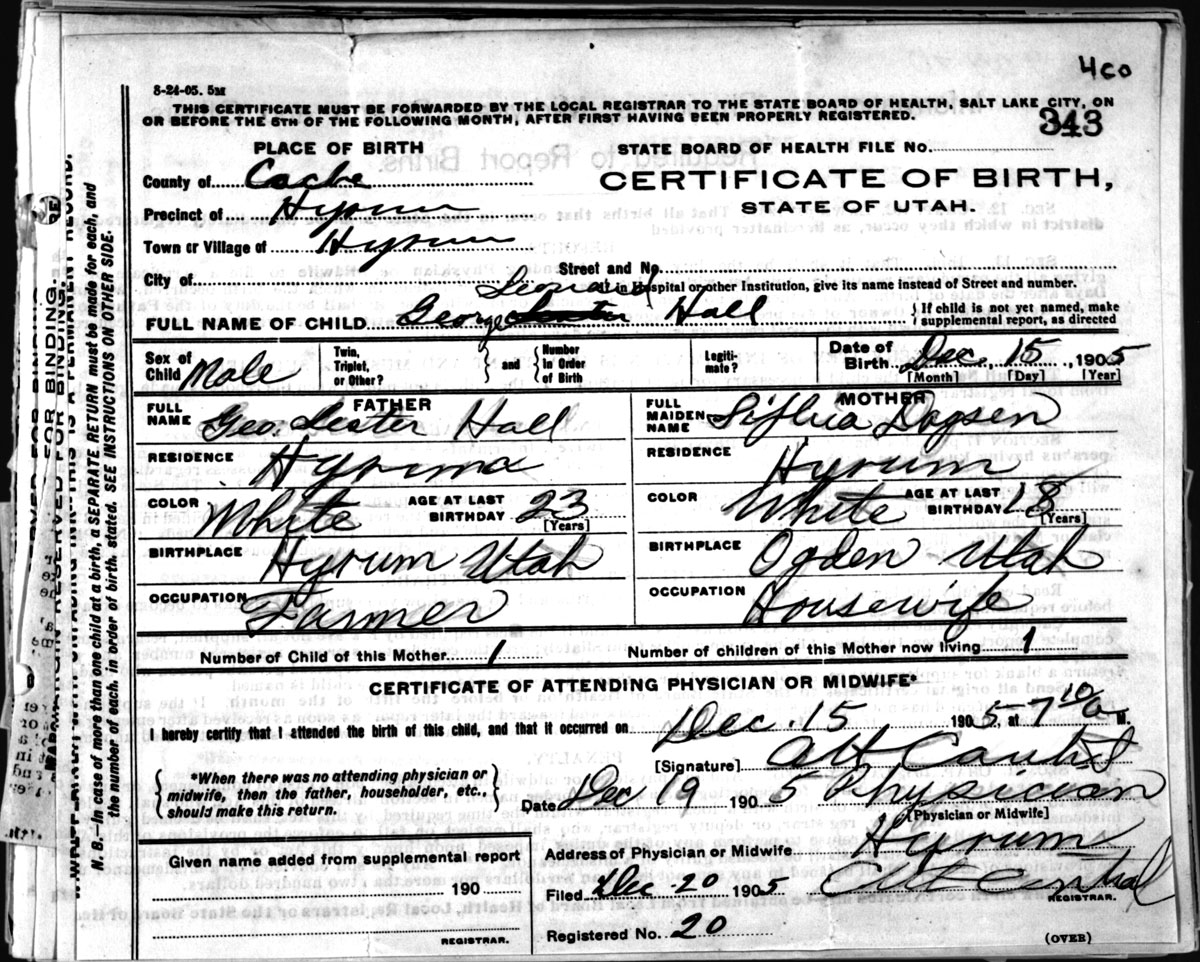 4co
8-24-05. 5M
THIS CERTIFICATE MUST BE FORWARDED BY THE LOCAL REGISTRAR TO THE STATE BOARD OF HEALTH, SALT LAKE CITY, ON
OR BEFORE THE 5TH OF THE FOLLOWING MONTH, AFTER FIRST HAVING BEEN PROPERLY REGISTERED.
343
PLACE OF BIRTH
STATE BOARD OF HEALTH FILE NO.
County of Cache
CERTIFICATE OF BIRTH,
Precinct of Hyrum
STATE OF UTAH.
Town or Village of Hyrum
City of
Street and No.
Leonard
If in Hospital or other Institution, give its name instead of Street and number.
FULL NAME OF CHILD George Lester Hall
{ If child is not yet named, make
supplemental report, as directed
Sex of Child Male
Twin, Triplet, or Other? } and { Number in Order of Birth
Legitimate?
Date of Birth Dec. 15, 1905
[Month] [Day] [Year]
FATHER
MOTHER
FULL NAME Geo. Lester Hall
FULL MAIDEN NAME
RESIDENCE
RESIDENCE Hyrum
COLOR White AGE AT LAST BIRTHDAY 23
[Years]
COLOR White AGE AT LAST BIRTHDAY 18
[Years]
BIRTHPLACE Hyrum Utah
BIRTHPLACE Ogden Utah
OCCUPATION Farmer
OCCUPATION Housewife
Number of Child of this Mother 1
Number of children of this Mother now living 1
CERTIFICATE OF ATTENDING PHYSICIAN OR MIDWIFE*
I hereby certify that I attended the birth of this child, and that it occurred on Dec. 15, 1905, at 7 10 a M.
[Signature]
{ *When there was no attending physician or
midwife, then the father, householder, etc.,
should make this return. }
Date Dec 19 1905 Physician
[Physician or Midwife]
Address of Physician or Midwife Hyrum
Given name added from supplemental report
190
REGISTRAR.
Filed Dec 20 1905
REGISTRAR.
Registered No. 20
(OVER)
N. B.—In case of more than one child at a birth, a SEPARATE RETURN must be made for each, and
the number of each, in order of birth, stated. SEE INSTRUCTIONS ON OTHER SIDE.